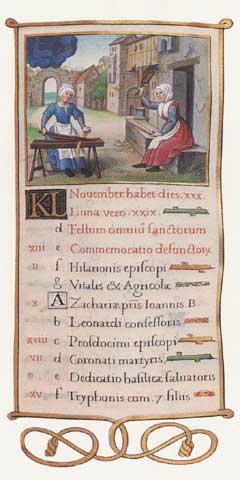 KL November habet dies. xxx.
Luna vero. xxix.
d Festum omniū sanctorum
xiii e Commemoratio defunctorꝝ.
ii f Hilarionis episcopi
g Vitalis & Agricolæ
x A Zachariæ pris Ioannis B.
b Leonardi confessoris
xviii c Prosdocimi episcopi
vii d Coronati martyris
e Dedicatio basilicæ saluatoris
xv f Tryphonis cum. 7 filiis